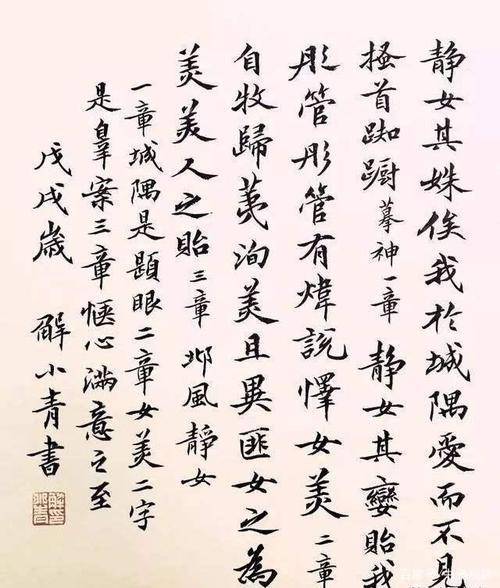 静女其姝俟我於城隅愛而不見
搔首踟蹰摹神一章 静女其孌貽我
彤管彤管有煒説懌女美二章
自牧歸荑洵美且異匪女之為
美美人之貽三章 邶風静女
一章城隅是題眼二章女美二字
是羣案三章愜心滿意之至
戊戌歲 解小青書